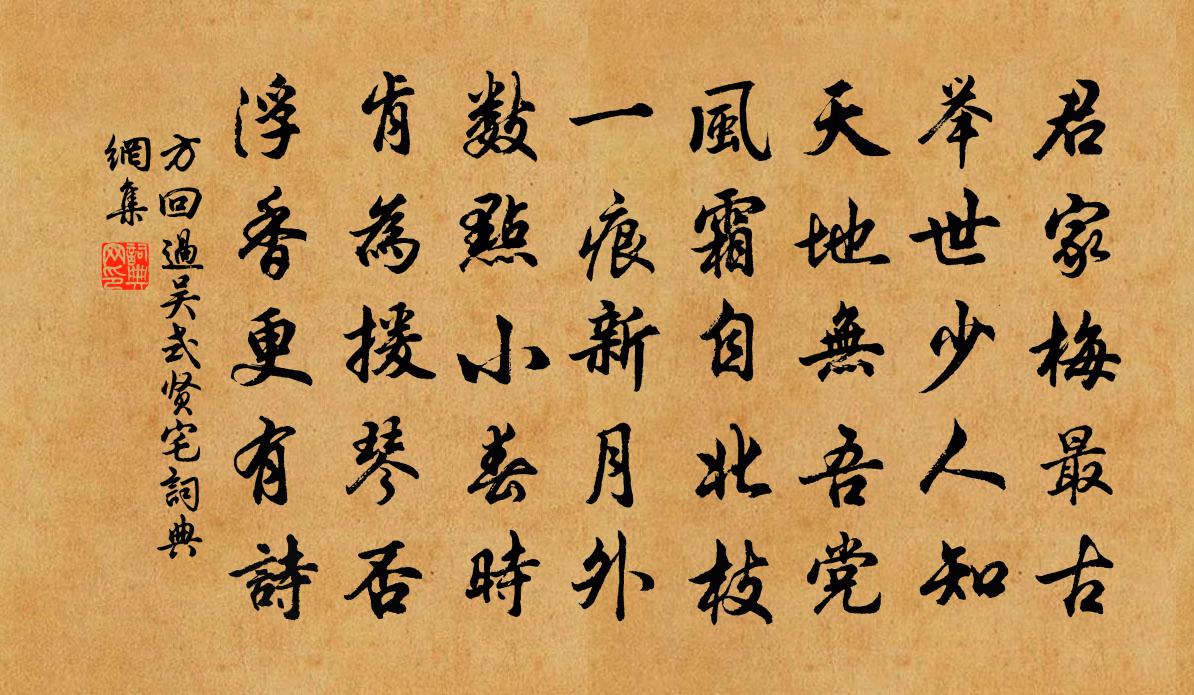 君家梅最古
举世少人知
天地無吾党
風霜自北枝
一痕新月外
数點小春時
肯為援琴否
浮香更有詩
方回過吴式贤宅詞典
網集
詞典
网印